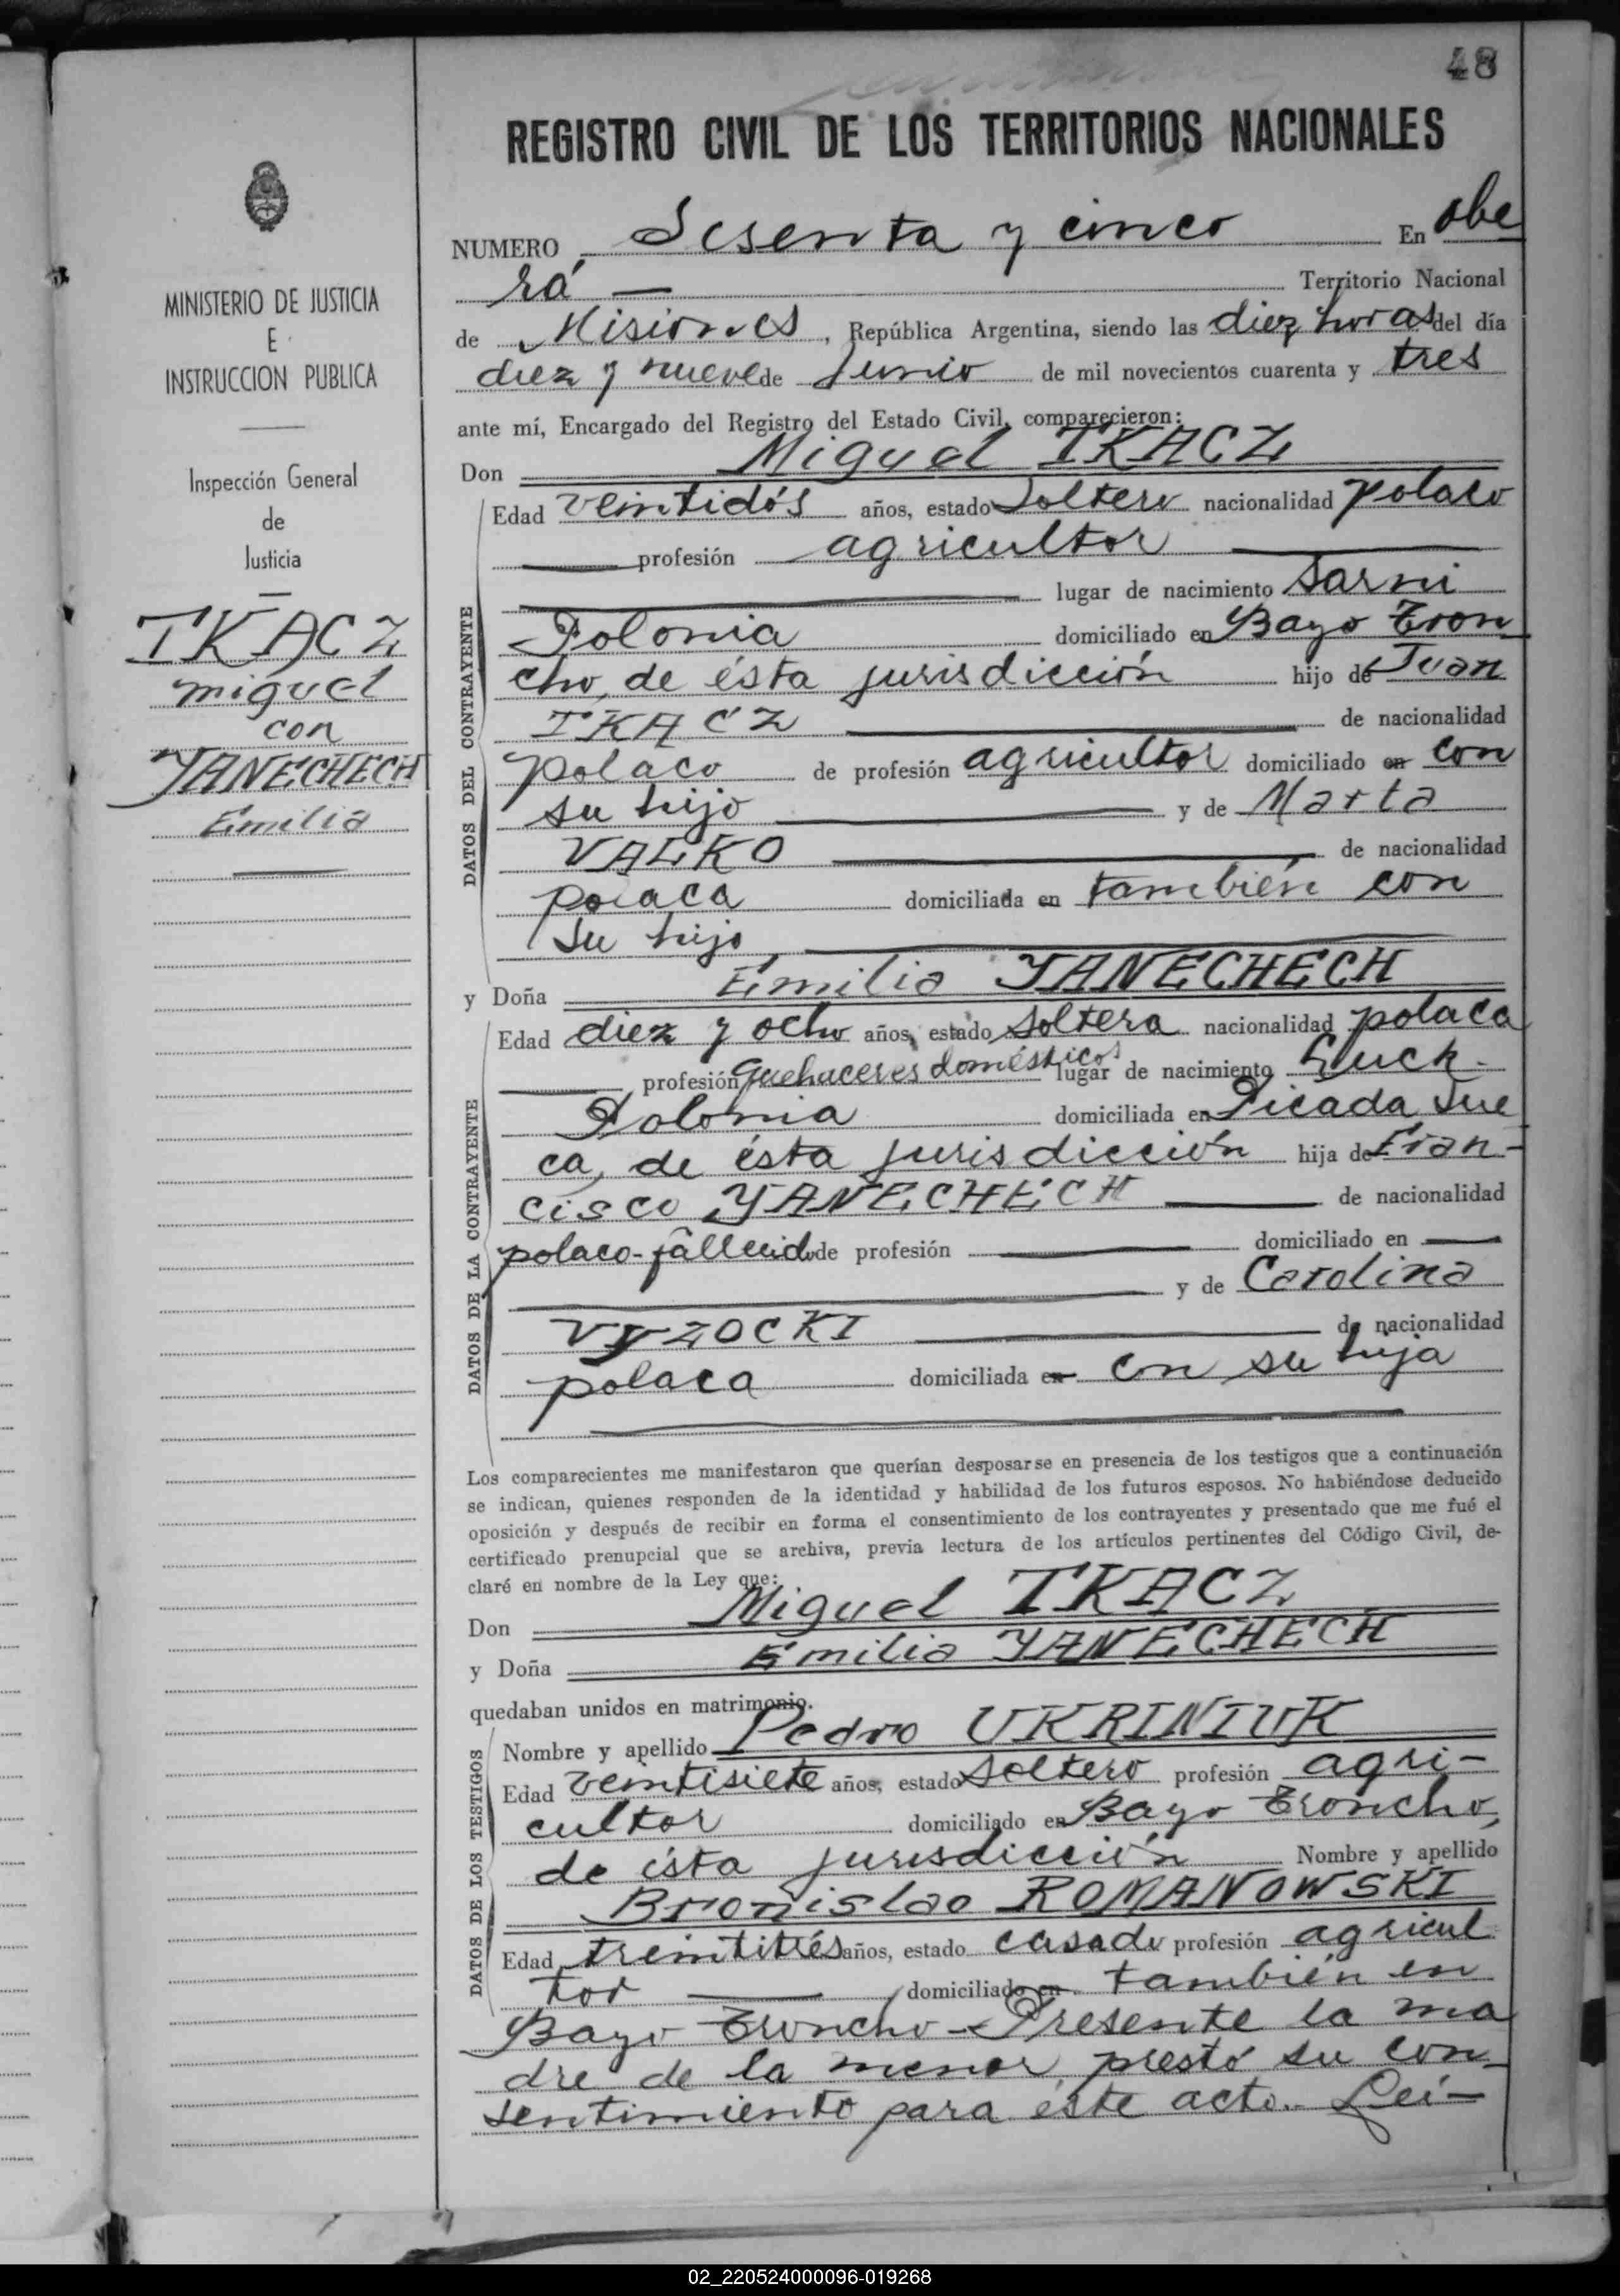 48
REGISTRO CIVIL DE LOS TERRITORIOS NACIONALES
MINISTERIO DE JUSTICIA
E
INSTRUCCION PUBLICA
Inspección General
de
Justicia
TKACZ
Miguel
con
YANECHECH
Emilia
NUMERO Sesenta y cinco En Obe
rá — Territorio Nacional
de Misiones, República Argentina, siendo las diez horas del día
diez y nueve de Junio de mil novecientos cuarenta y tres
ante mí, Encargado del Registro del Estado Civil, comparecieron:
Don Miguel TKACZ
DATOS DEL CONTRAYENTE
Edad veintidós años, estado Soltero nacionalidad polaco
profesión agricultor
lugar de nacimiento Sarni
Polonia domiciliado en Bayo Tron
cho, de ésta jurisdicción hijo de Juan
TKACZ de nacionalidad
polaco de profesión agricultor domiciliado en con
su hijo y de Marta
VALKO de nacionalidad
polaca domiciliada en también con
su hijo
y Doña Emilia YANECHECH
DATOS DE LA CONTRAYENTE
Edad diez y ocho años, estado Soltera nacionalidad polaca
profesión Quehaceres domésticos lugar de nacimiento Luck-
Polonia domiciliada en Picada Sue
ca, de ésta jurisdicción hija de Fran-
cisco YANECHECH de nacionalidad
polaco-fallecido de profesión domiciliado en
y de Carolina
VYZOCKI de nacionalidad
polaca domiciliada en con su hija
Los comparecientes me manifestaron que querían desposarse en presencia de los testigos que a continuación
se indican, quienes responden de la identidad y habilidad de los futuros esposos. No habiéndose deducido
oposición y después de recibir en forma el consentimiento de los contrayentes y presentado que me fué el
certificado prenupcial que se archiva, previa lectura de los artículos pertinentes del Código Civil, de-
claré en nombre de la Ley que:
Don Miguel TKACZ
y Doña Emilia YANECHECH
quedaban unidos en matrimonio.
DATOS DE LOS TESTIGOS
Nombre y apellido Pedro UKRINIUK
Edad veintisiete años, estado Soltero profesión agri-
cultor domiciliado en Bayo Troncho,
de ésta jurisdicción Nombre y apellido
Bronislao ROMANOWSKI
Edad treintitrés años, estado casado profesión agricul
tor domiciliado en también en
Bayo Troncho- Presente la ma
dre de la menor, prestó su con-
sentimiento para éste acto.- Leí-
02_220524000096-019268